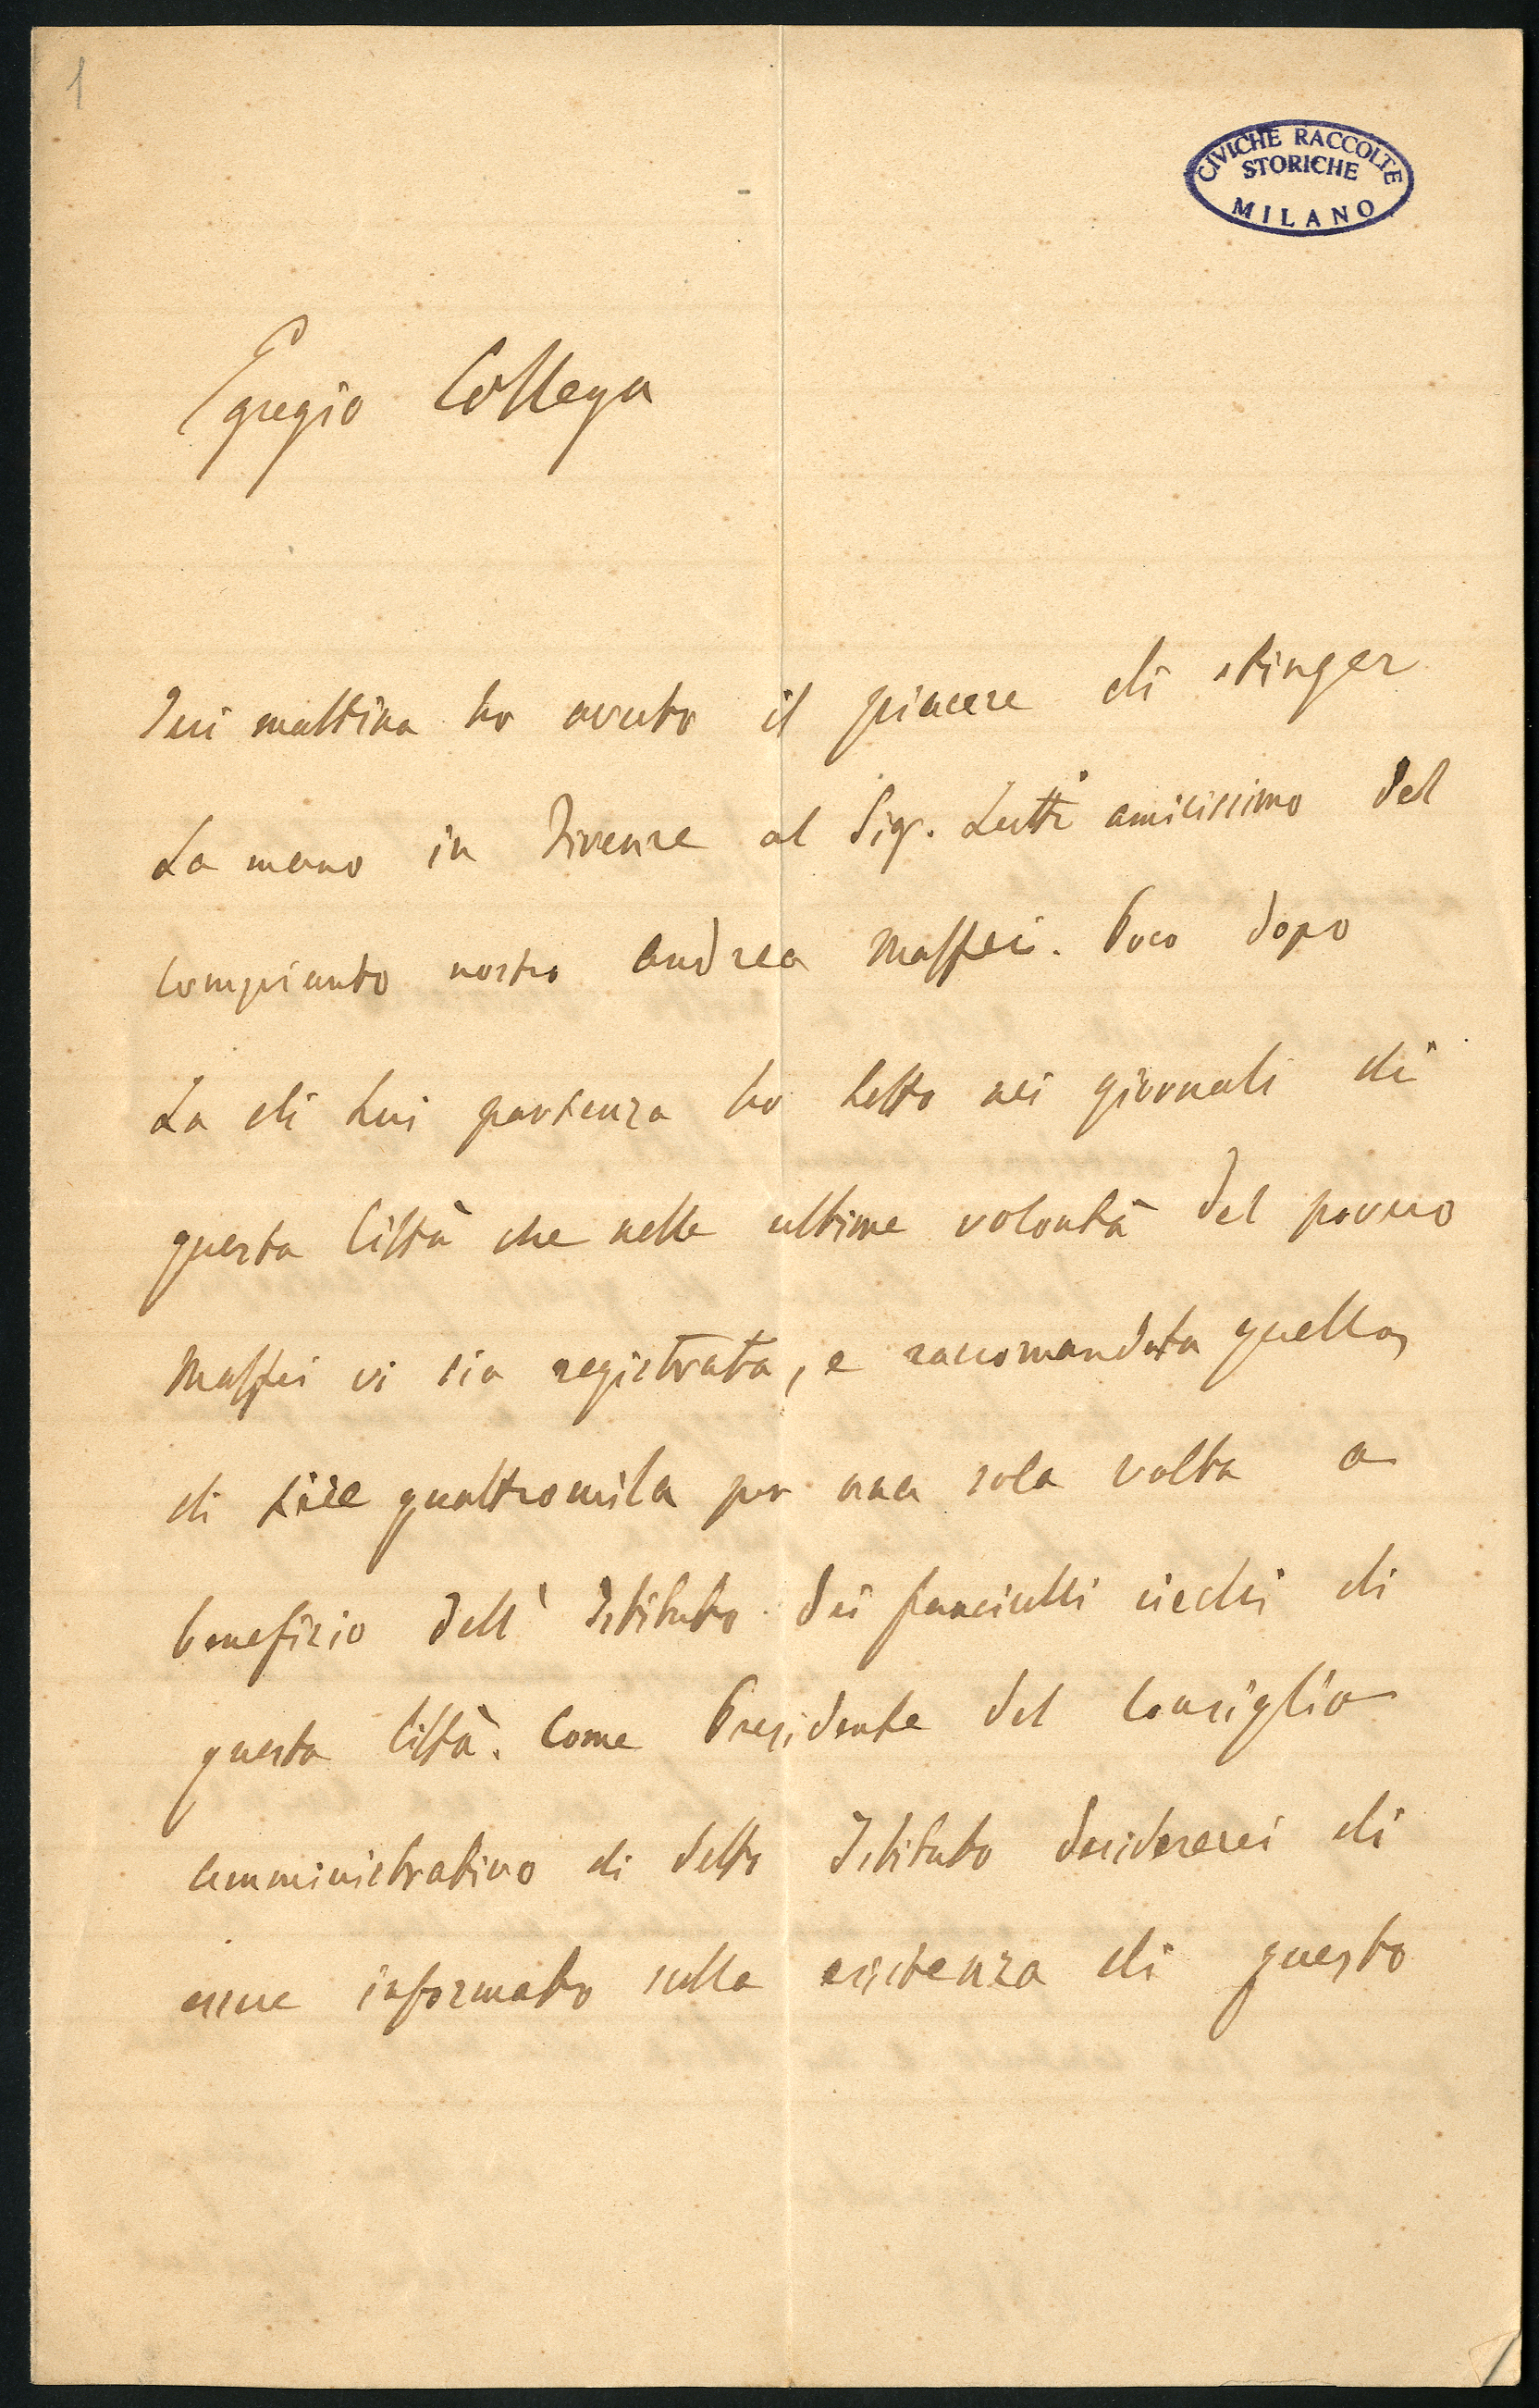 1
CIVICHE RACCOLTE
STORICHE
MILANO
Egregio Collega
Ieri mattina ho avuto il piacere di stinger
la mano in Firenze al Sig. Lutti amicissimo del
compianto nostro Andrea Maffei. Poco dopo
la di lui partenza ho letto nei giornali di
questa Città che nelle ultime volontà del povero
Maffei vi sia registrata, e raccomandata quella
di Lire quattromila per una sola volta a
benefizio dell' Istituto dei fanciulli ciechi di
questa Città. Come Presidente del Consiglio
amministrativo di detto Istituto desidererei di
essere informato sulla esistenza di questo